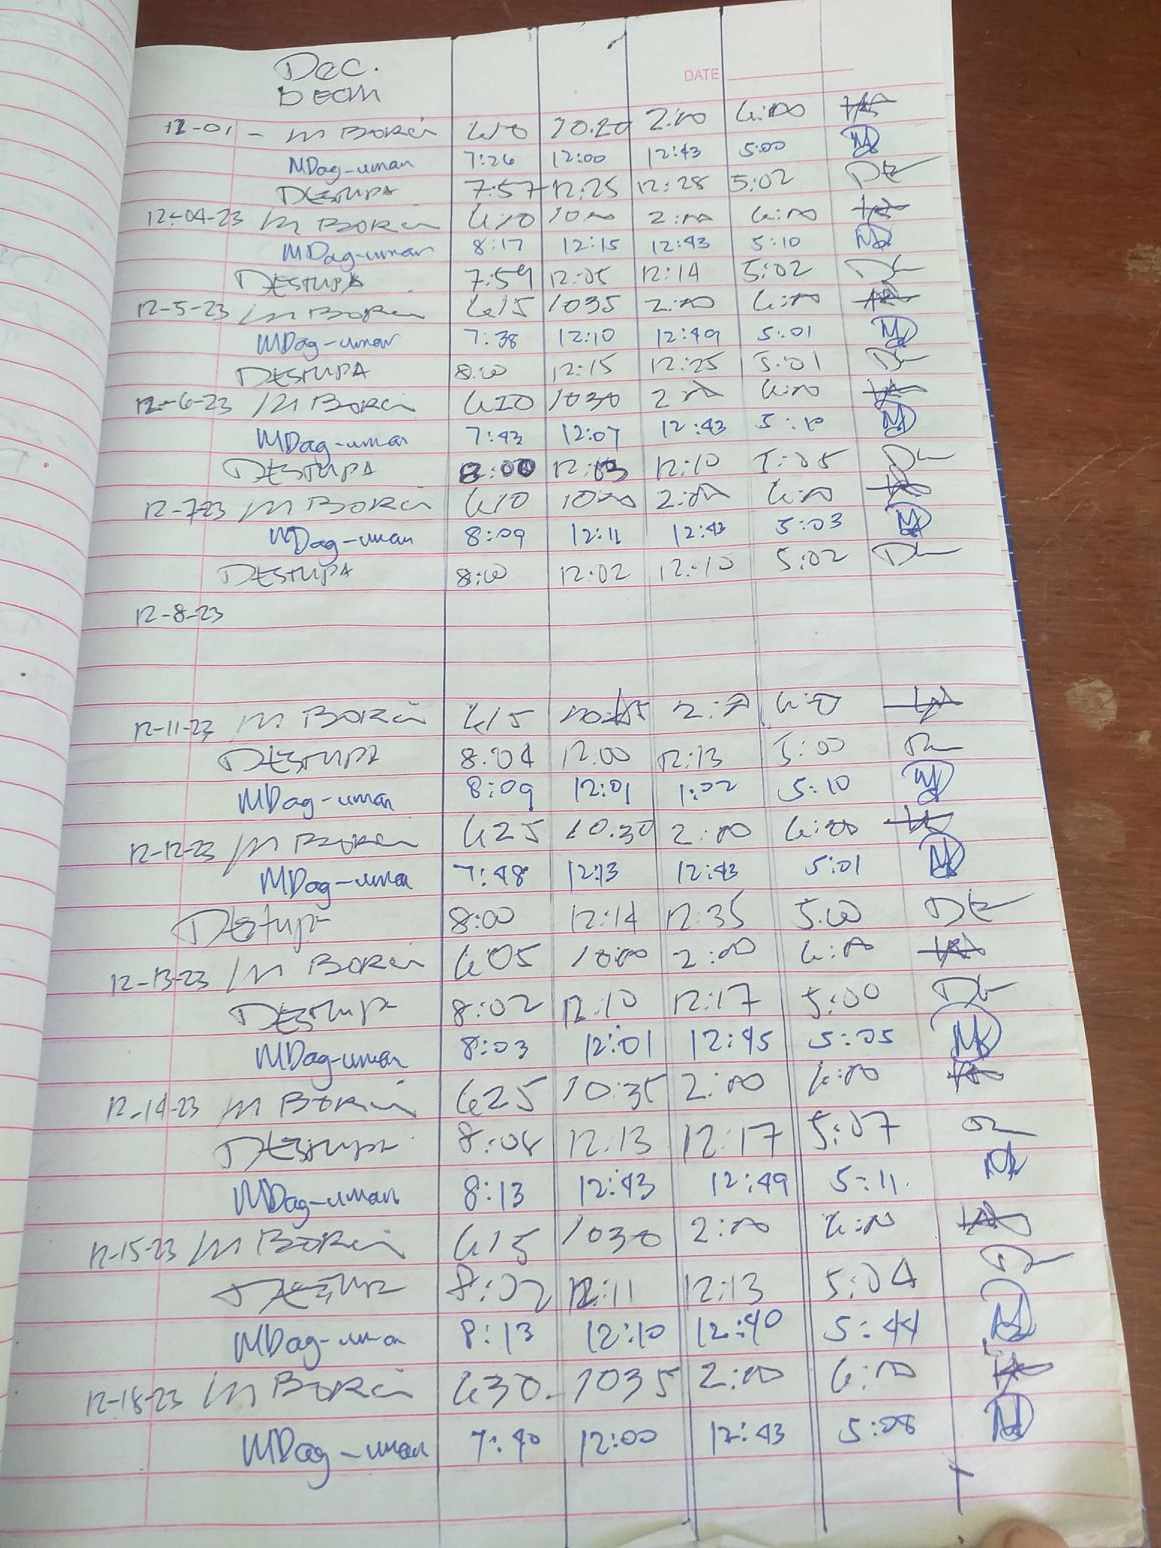 Dec.
DATE
12-01 - M Borci 610 10:20 2:00 6:00
MDag-uman 7:26 12:00 12:43 5:00
DESTUPA 7:57 12:25 12:28 5:02
12-04-23 M Borci 6:10 1000 2:00 6:00
MDag-uman 8:17 12:15 12:43 5:10
DESTUPA 7:59 12:05 12:14 5:02
12-5-23 M Borci 615 1035 2:00 6:00
MDag-uman 7:38 12:10 12:49 5:01
DESTUPA 8:00 12:15 12:25 5:01
12-6-23 M Borci 620 1030 2:00 6:00
MDag-uman 7:43 12:07 12:43 5:10
DESTUPA 8:00 12:03 12:10 5:05
12-7-23 M Borci 610 1000 2:00 6:00
MDag-uman 8:09 12:11 12:43 5:03
DESTUPA 8:00 12:02 12:10 5:02
12-8-23
12-11-23 M Borci 615 2:00 6:00
DESTUPA 8:04 12:00 12:13 5:00
MDag-uman 8:09 12:01 1:02 5:10
12-12-23 M Borci 625 10:30 2:00 6:00
MDag-uman 7:48 12:13 12:43 5:01
DEstupa 8:00 12:14 12:35 5:00
12-13-23 M Borci 605 10:00 2:00 6:00
DEstupa 8:02 12:10 12:17 5:00
MDag-uman 8:03 12:01 12:45 5:05
12-14-23 M Borci 625 10:35 2:00 6:00
DEstupa 8:08 12:13 12:17 5:07
MDag-uman 8:13 12:43 12:49 5:11
12-15-23 M Borci 615 1030 2:00 6:00
DEstupa 8:02 12:11 12:13 5:04
MDag-uman 8:13 12:10 12:40 5:44
12-18-23 M Borci 630 1035 2:00 6:00
MDag-uman 7:40 12:00 12:43 5:08